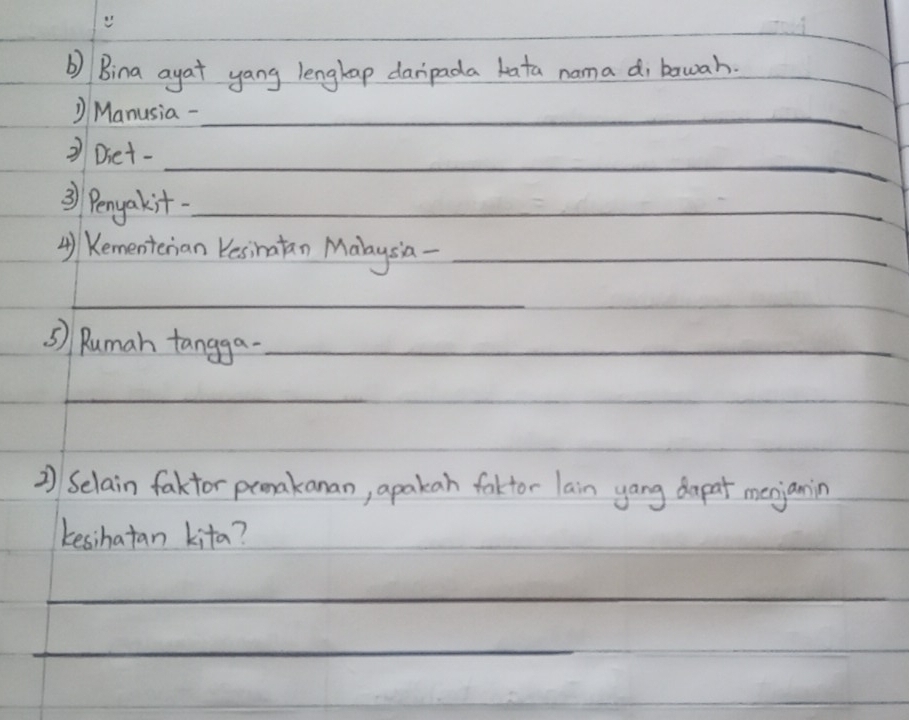 b) Bina ayat yang lengkap daripada kata nama di bawah.
1) Manusia -
2) Diet -
3) Penyakit -
4) Kementerian Kesihatan Malaysia -
5) Rumah tangga -
2) Selain faktor pemakanan, apakah faktor lain yang dapat menjamin
kesihatan kita?